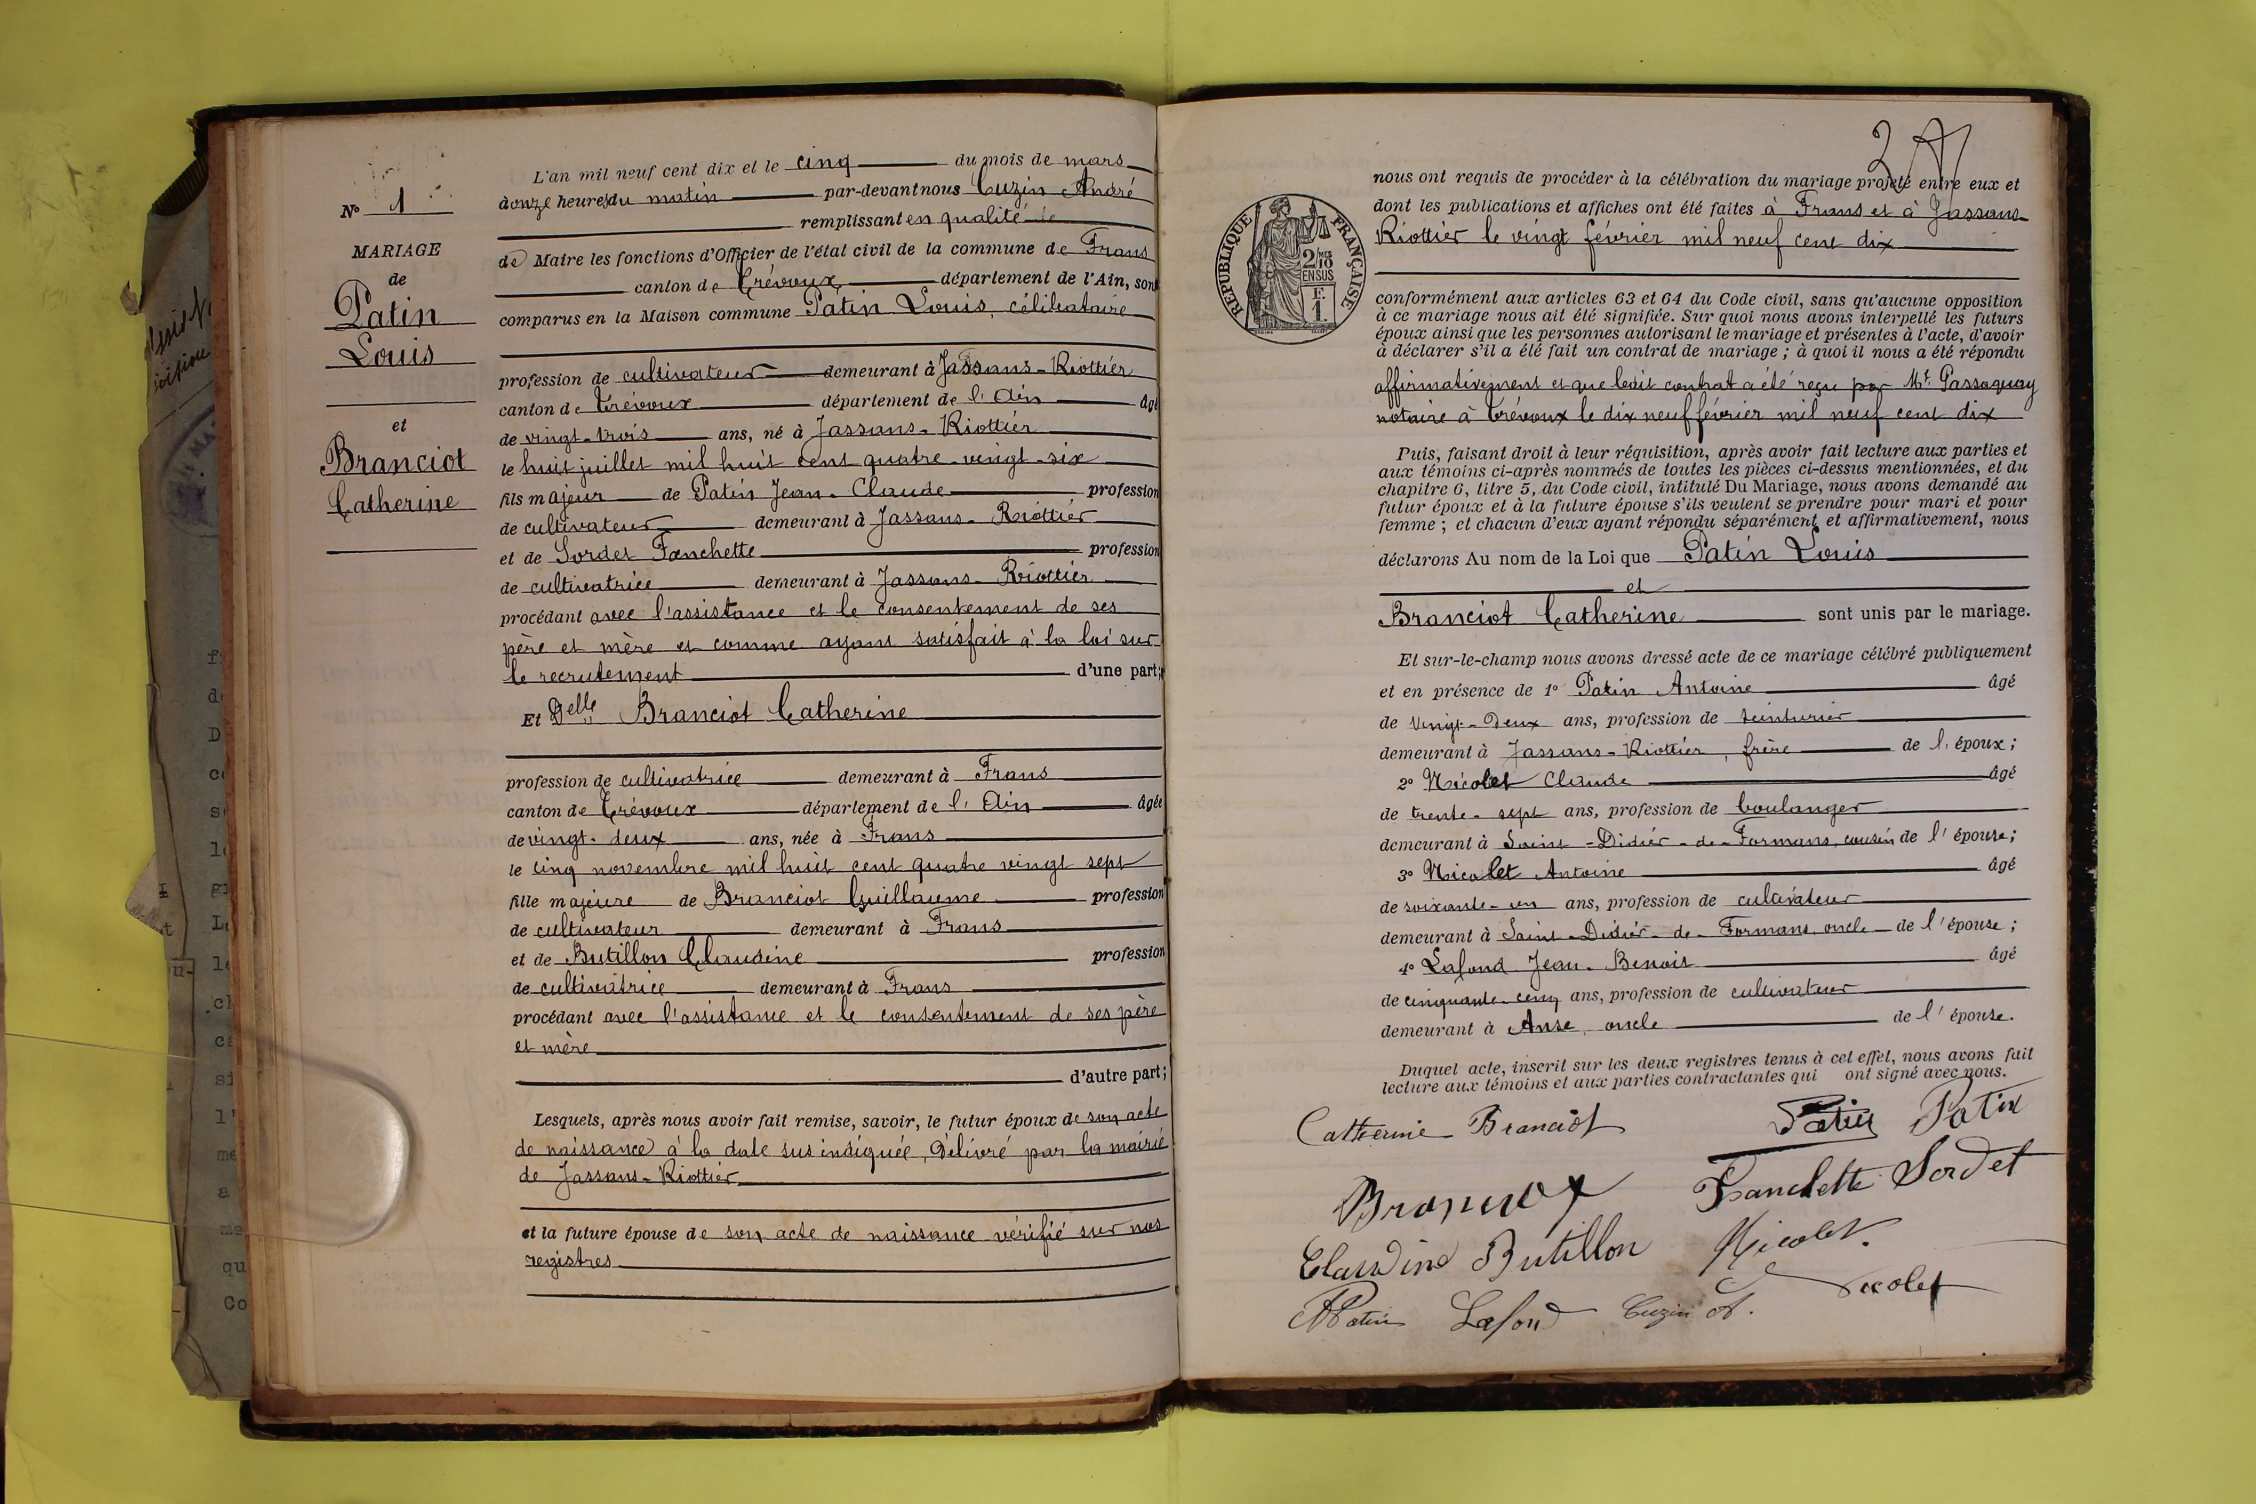 N° 1
MARIAGE
de
Patin
Louis
et
Branciot
Catherine
L'an mil neuf cent dix et le cinq du mois de mars
à onze heures du matin par-devant nous Cuzin André
remplissant en qualité de
de Maire les fonctions d'Officier de l'état civil de la commune de Frans
canton de Trévoux département de l'Ain, sont
comparus en la Maison commune Patin Louis, célibataire
profession de cultivateur demeurant à Jassans-Riottier
canton de Trévoux département de l'Ain âgé
de vingt-trois ans, né à Jassans-Riottier
le huit juillet mil huit cent quatre-vingt-six
fils majeur de Patin Jean-Claude profession
de cultivateur demeurant à Jassans-Riottier
et de Sordet Fanchette profession
de cultivatrice demeurant à Jassans-Riottier
procédant avec l'assistance et le consentement de ses
père et mère et comme ayant satisfait à la loi sur
le recrutement d'une part;
Et Delle Branciot Catherine
profession de cultivatrice demeurant à Frans
canton de Trévoux département de l'Ain âgée
de vingt-deux ans, née à Frans
le cinq novembre mil huit cent quatre vingt sept
fille majeure de Branciot Guillaume profession
de cultivateur demeurant à Frans
et de Butillon Claudine profession
de cultivatrice demeurant à Frans
procédant avec l'assistance et le consentement de ses père
et mère
d'autre part;
Lesquels, après nous avoir fait remise, savoir, le futur époux de son acte
de naissance à la date sus indiquée, délivré par la mairie
de Jassans-Riottier
et la future épouse de son acte de naissance vérifié sur nos
registres
2
nous ont requis de procéder à la célébration du mariage projeté entre eux et
dont les publications et affiches ont été faites à Frans et à Jassans-
Riottier le vingt février mil neuf cent dix
RÉPUBLIQUE FRANÇAISE
2/10
EN SUS
F.
1.
conformément aux articles 63 et 64 du Code civil, sans qu'aucune opposition
à ce mariage nous ait été signifiée. Sur quoi nous avons interpellé les futurs
époux ainsi que les personnes autorisant le mariage et présentes à l'acte, d'avoir
à déclarer s'il a été fait un contrat de mariage; à quoi il nous a été répondu
affirmativement et que ledit contrat a été reçu par Mt. Passaquay
notaire à Trévoux le dix neuf février mil neuf cent dix
Puis, faisant droit à leur réquisition, après avoir fait lecture aux parties et
aux témoins ci-après nommés de toutes les pièces ci-dessus mentionnées, et du
chapitre 6, titre 5, du Code civil, intitulé Du Mariage, nous avons demandé au
futur époux et à la future épouse s'ils veulent se prendre pour mari et pour
femme; et chacun d'eux ayant répondu séparément et affirmativement, nous
déclarons Au nom de la Loi que Patin Louis
et
Branciot Catherine sont unis par le mariage.
Et sur-le-champ nous avons dressé acte de ce mariage célébré publiquement
et en présence de 1° Patin Antoine âgé
de vingt-deux ans, profession de teinturier
demeurant à Jassans-Riottier, frère de l'époux;
2° Nicolet Claude âgé
de trente-sept ans, profession de boulanger
demeurant à Saint-Didier-de-Formans, cousin de l'épouse;
3° Nicolet Antoine âgé
de soixante-un ans, profession de cultivateur
demeurant à Saint-Didier-de-Formans, oncle de l'épouse;
4° Lafond Jean-Benoit âgé
de cinquante-cinq ans, profession de cultivateur
demeurant à Anse, oncle de l'épouse.
Duquel acte, inscrit sur les deux registres tenus à cet effet, nous avons fait
lecture aux témoins et aux parties contractantes qui ont signé avec nous.
Catherine Branciot Patin Patin
Branciot Franchette Sordet
Claudine Butillon Nicolet.
A Patin Lafond Cuzin A. Nicolet